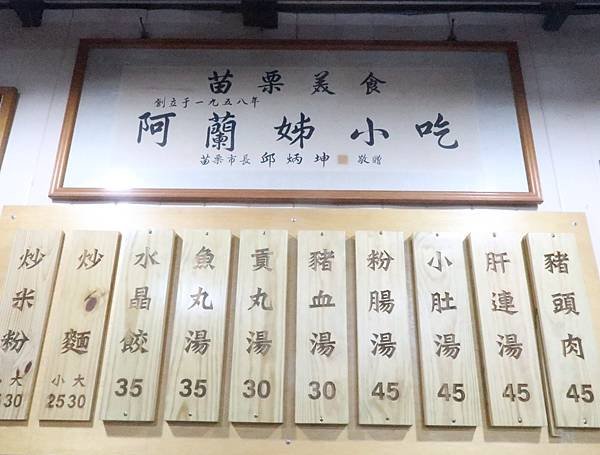 苗栗美食
創立于一九五八年
阿蘭姊小吃
苗栗市長 邱炳坤 敬贈
豬頭肉 45
肝連湯 45
小肚湯 45
粉腸湯 45
豬血湯 30
貢丸湯 30
魚丸湯 35
水晶餃 35
炒麵 小25 大30
炒米粉 大30